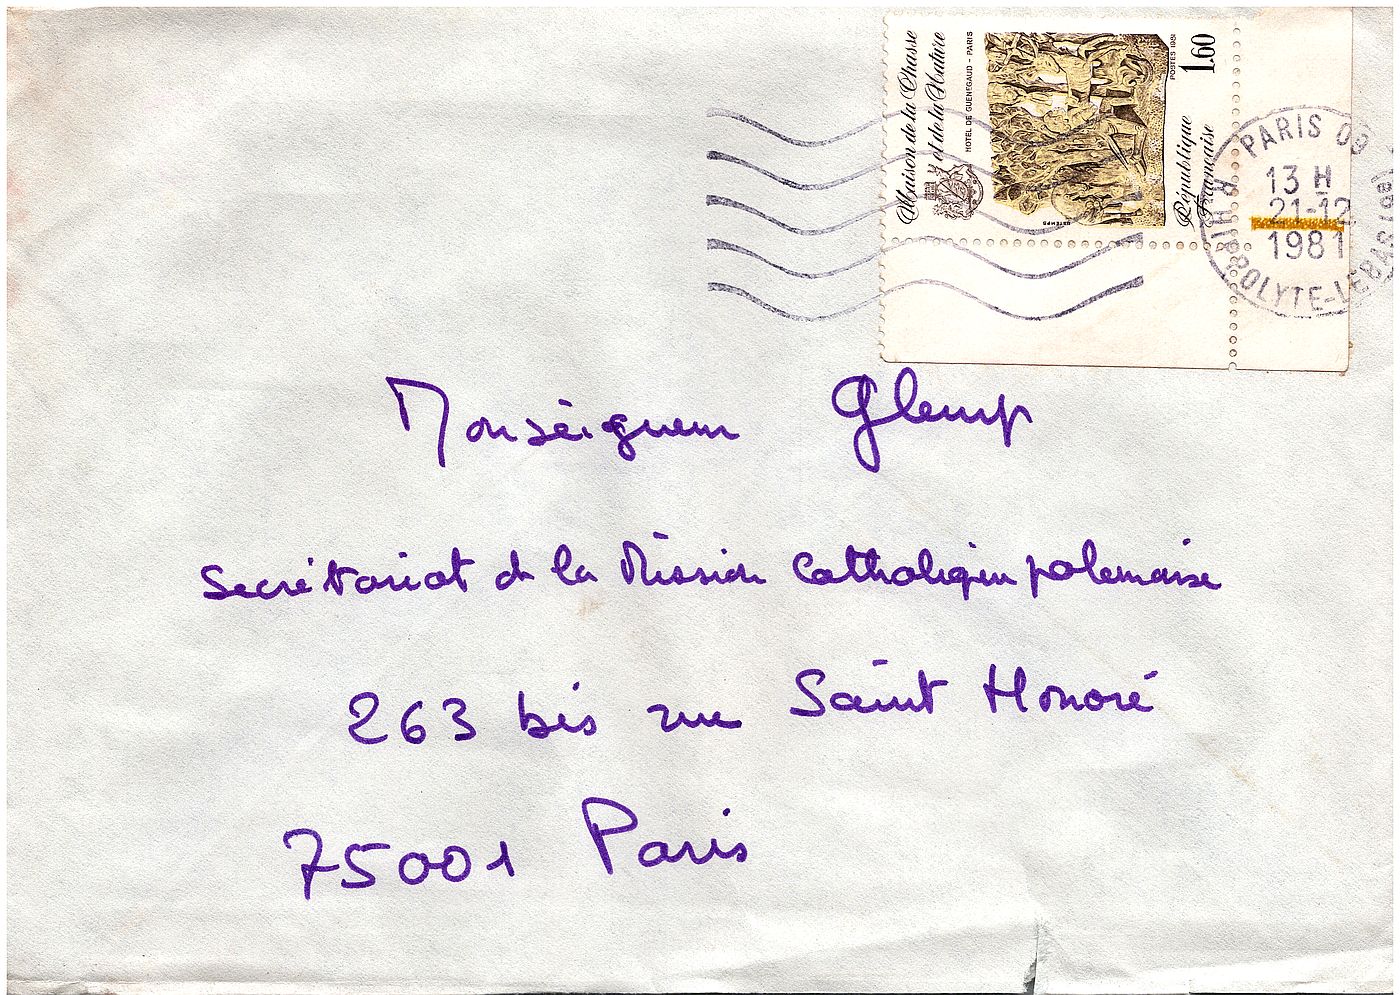 Maison de la Chasse
et de la Nature
HOTEL DE GUENEGAUD - PARIS
POSTES 1981
1.60
République
Française
PARIS 09
13 H
21-12
1981
R HIPPOLYTE-LEBAS (09)
Monseigneur Glemp
Secrétariat de la Mission Catholique polonaise
263 bis rue Saint Honoré
75001 Paris